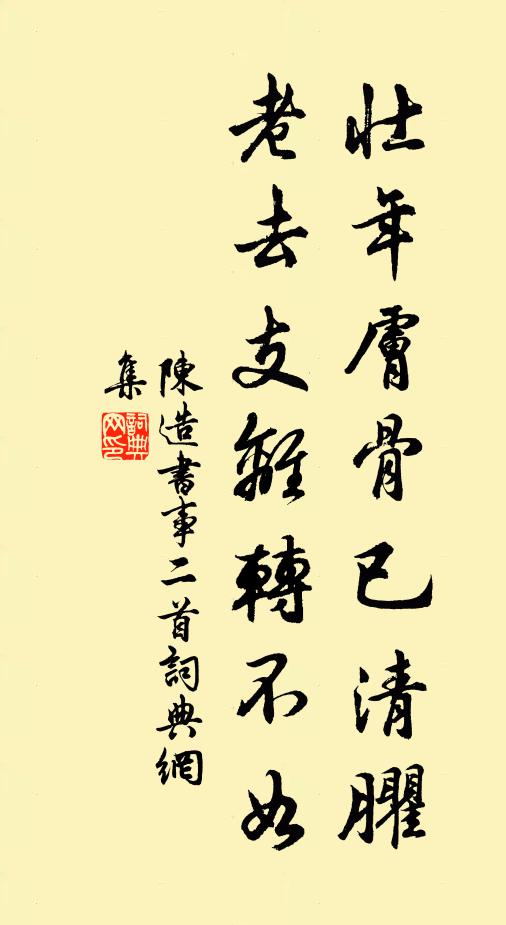 壯年膚骨已清臞
老去支離轉不如
陳造書事二首詞典網
集
詞典
网印